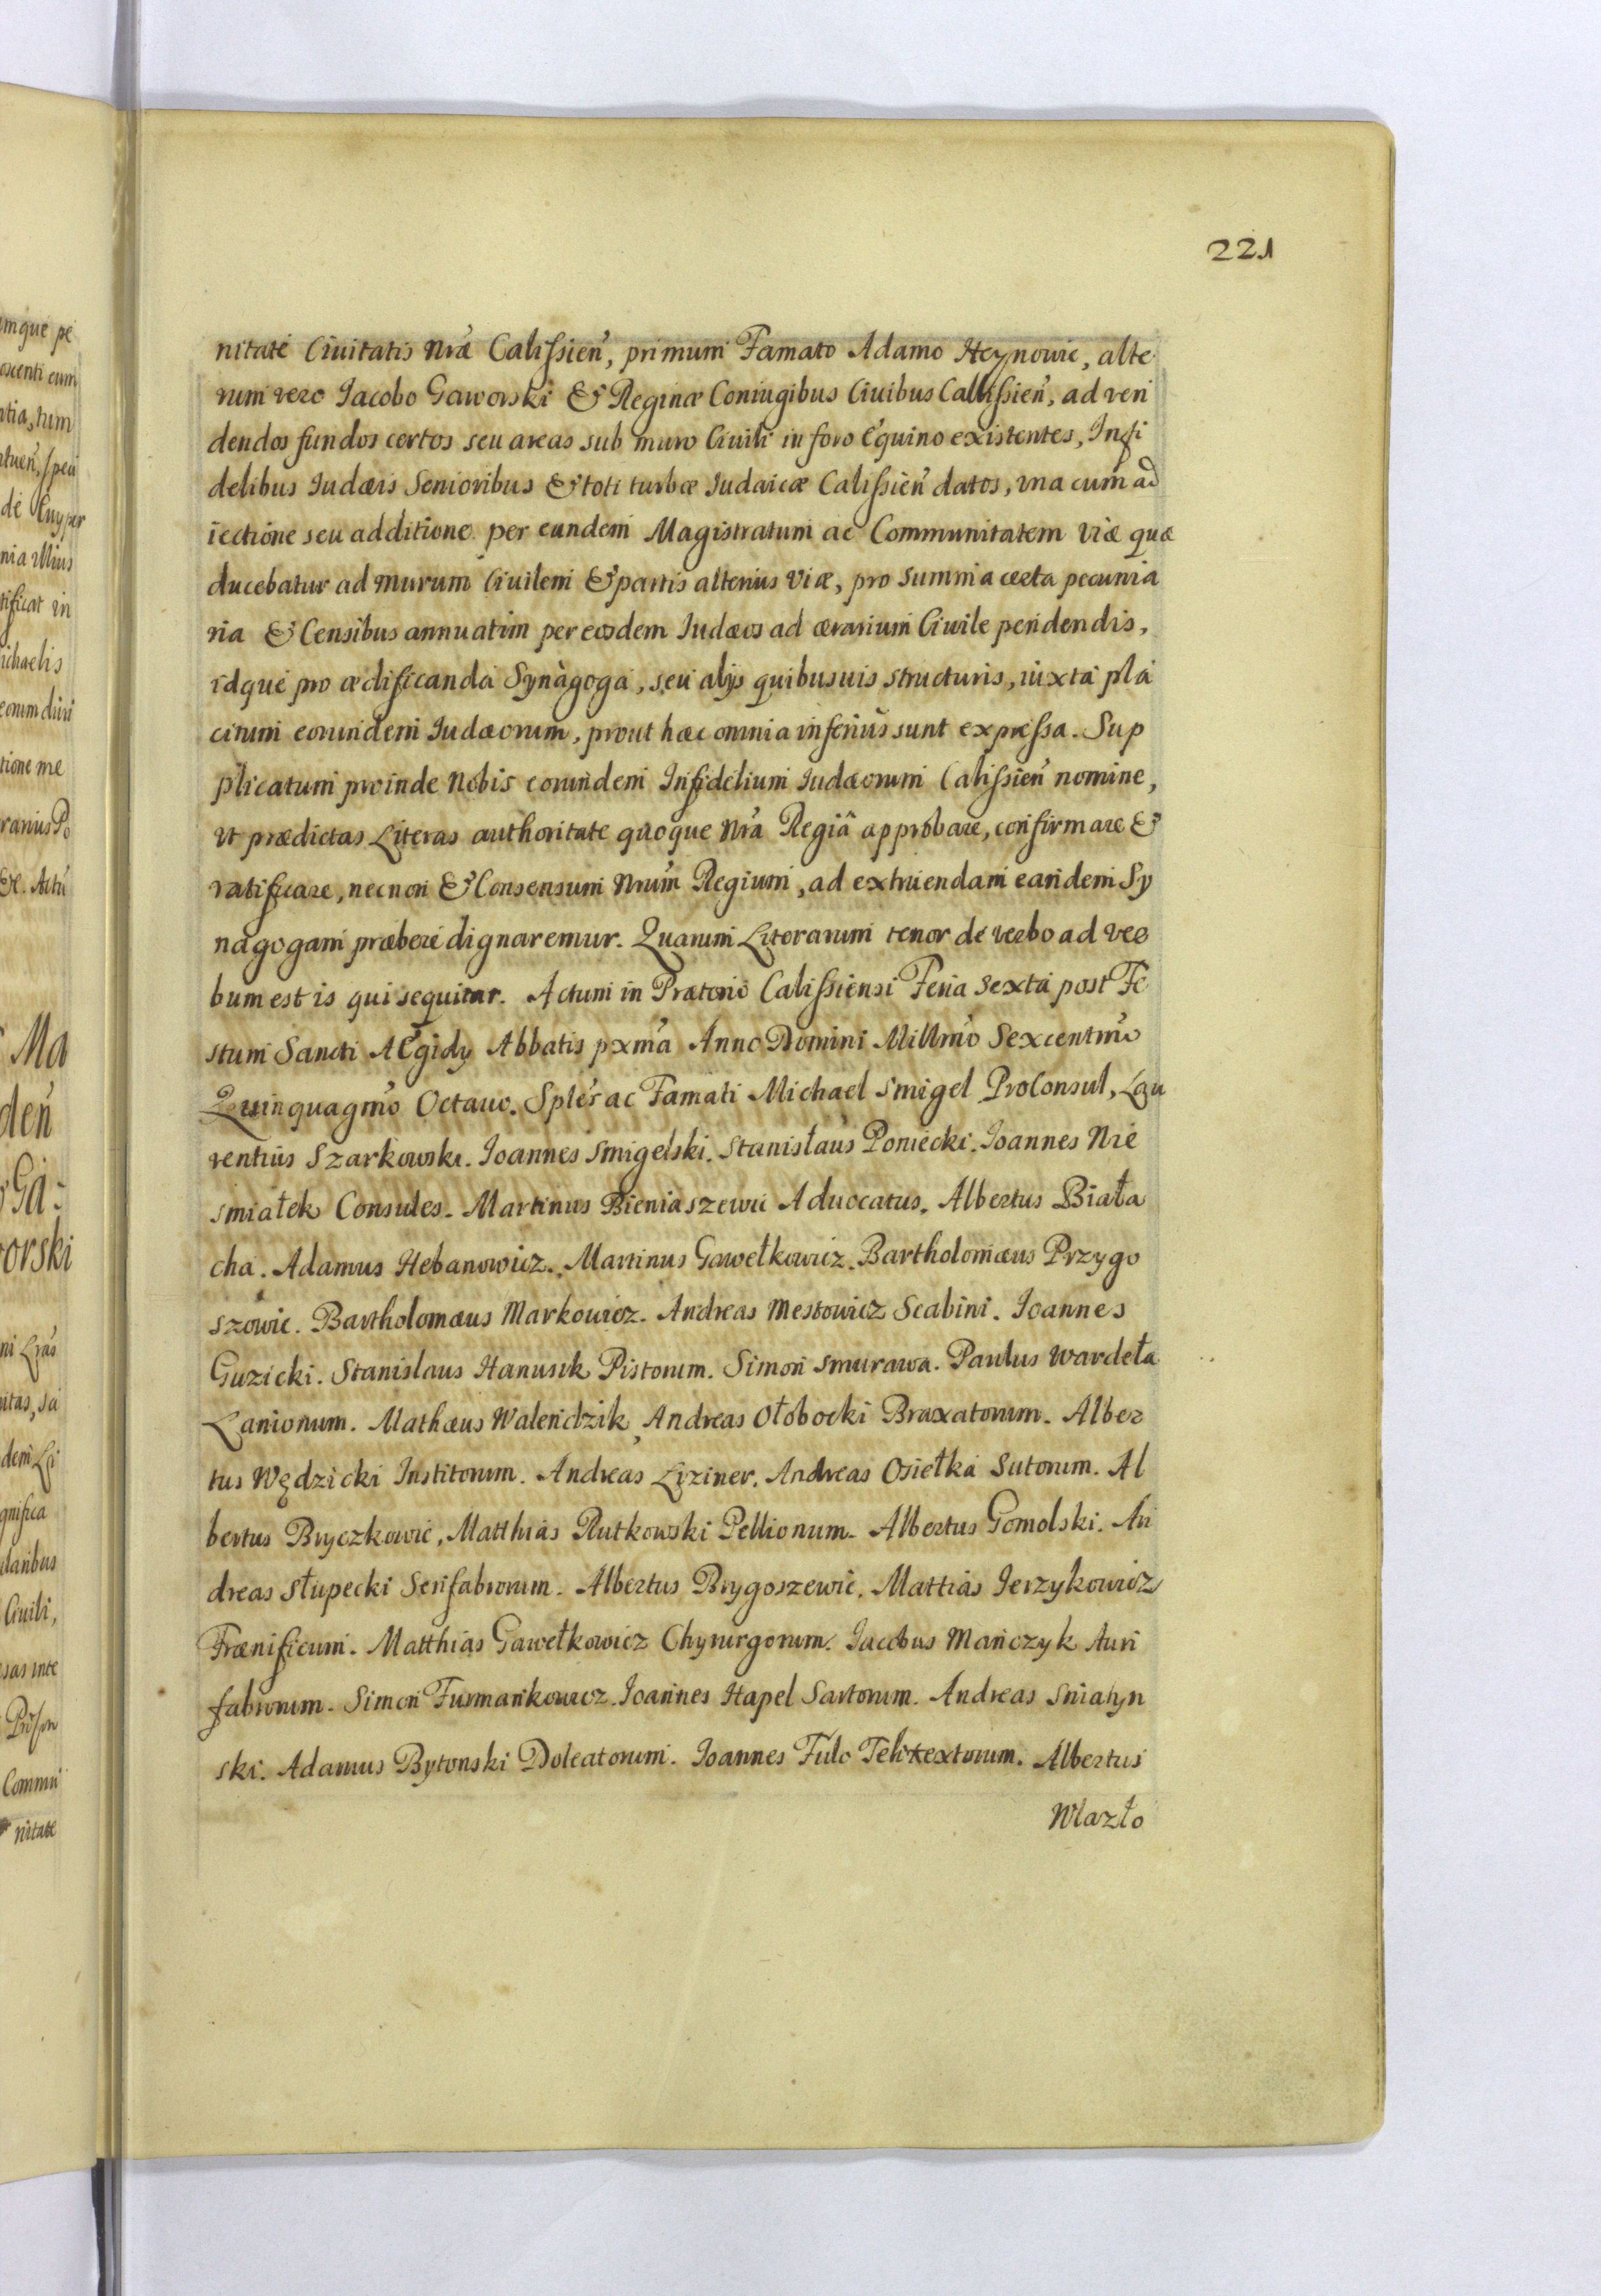 221
nitate Ciuitatis Nrae Calissien, primum Famato Adamo Heynowic, alte
rum vero Iacobo Gaworski & Reginae Coniugibus Ciuibus Callissien, ad ven
dendos fundos certos seu areas sub muro Ciuili in foro Equino existentes, Infi
delibus Iudaeis Senioribus & toti turbae Iudaicae Calissien datos, vna cum ad
iectione seu additione per eundem Magistratum ac Communitatem viae quae
ducebatur ad murum Ciuilem & partis alterius viae, pro summa certa pecunia
ria & Censibus annuatim per eosdem Iudaeos ad aerarium Ciuile pendendis,
idque pro aedificanda Synagoga, seu alijs quibusuis structuris, iuxta pla
citum eorundem Iudaeorum, prout haec omnia inferius sunt expressa. Sup
plicatum proinde Nobis eorundem Infidelium Iudaeorum Calissien nomine,
vt praedictas Literas authoritate quoque Nra Regiâ approbare, confirmare &
ratificare, necnon & Consensum Nrum Regium, ad extruendam eandem Sy
nagogam praebere dignaremur. Quarum Literarum tenor de verbo ad ver
bum est is qui sequitur. Actum in Praetorio Calissiensi Feria Sexta post Fe
stum Sancti AEgidy Abbatis pxma Anno Domini Millmo Sexcentmo
Quinquagmo Octauo. Sples ac Famati Michael Smigel ProConsul, Lau
rentius Szarkowski. Ioannes Smigelski. Stanisłaus Poniecki. Ioannes Nie
smiałek Consules. Martinus Bieniaszewic Aduocatus. Albertus Biała
cha. Adamus Hebanowicz. Martinus Gawełkowicz. Bartholomaeus Przygo
szowic. Bartholomaeus Markowicz. Andreas Mestowicz Scabini. Ioannes
Guzicki. Stanislaus Hanusik Pistorum. Simon Smurawa. Paulus Wardeła
Lanionum. Mathaeus Walendzik, Andreas Ołobocki Braxatorum. Alber
tus Wędzicki Institorum. Andreas Liziner. Andreas Osiełka Sutorum. Al
bertus Bryczkowic, Matthias Rutkowski Pellionum. Albertus Gomolski. An
dreas Słupecki Serifabrorum. Albertus Brygoszewic. Mattias Ierzykowicz
Fraenificum. Matthias Gawełkowicz Chyrurgorum. Iacobus Mańczyk Auri
fabrorum. Simon Furmankowicz. Ioannes Hapel Sartorum. Andreas Sniatyn
ski. Adamus Bytonski Doleatorum. Ioannes Fulo Telitextorum. Albertus
Wlazło